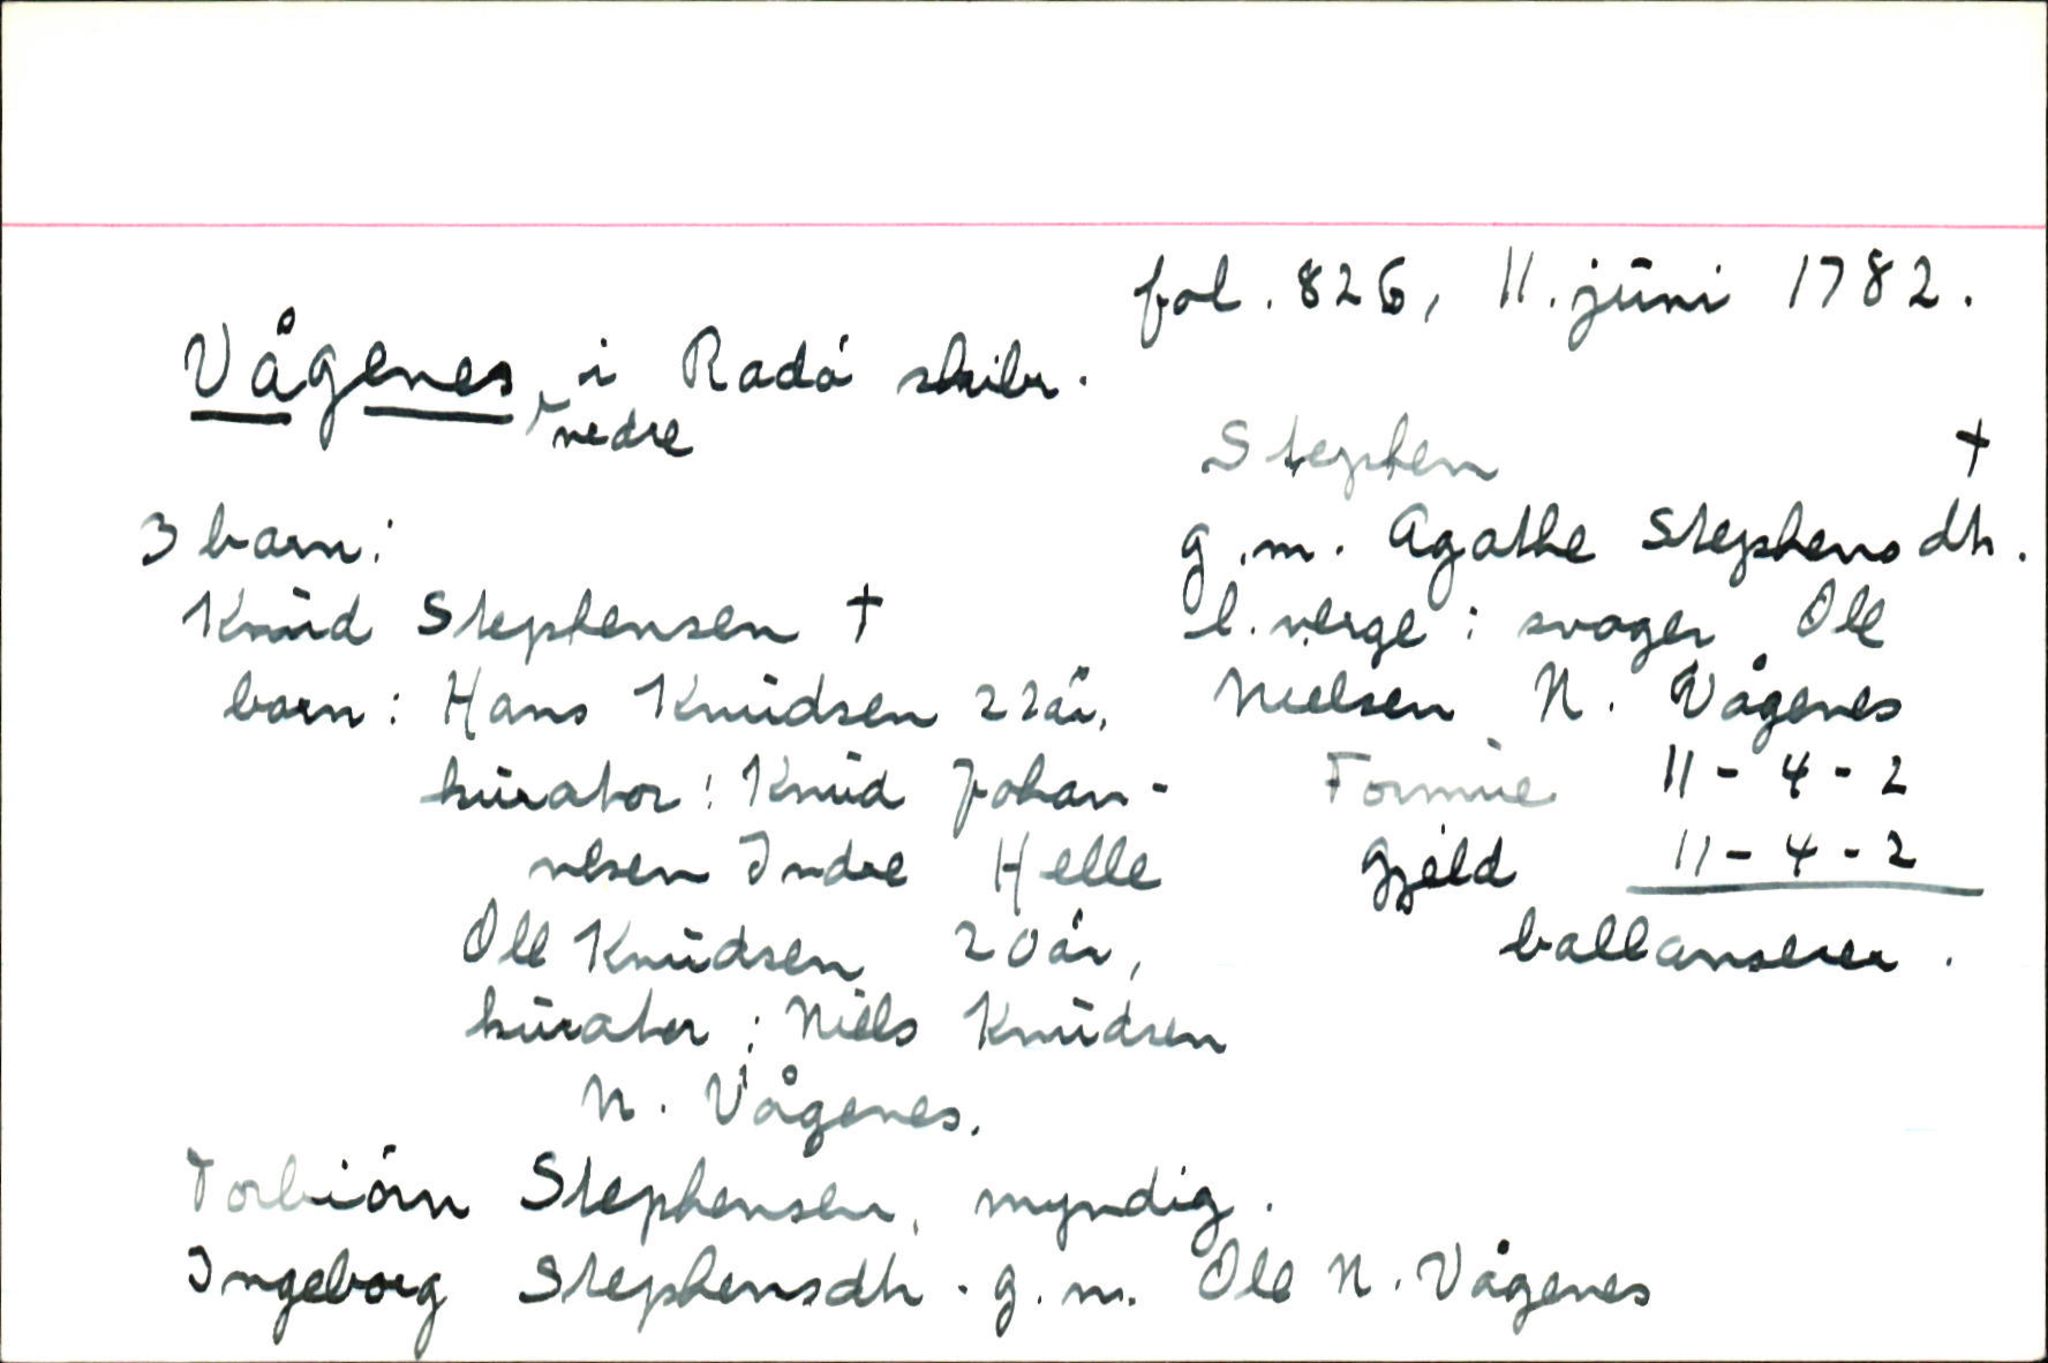 fol. 826, 11. juni 1782.
Vågenes, i Radö skibr.
nedre
Stephen †
g.m. Agathe Stephensdh.
l. verge: svoger Ole
Nielsen N. Vågenes
Formue 11-4-2
Gjeld 11-4-2
ballanserer.
3 barn:
Knud Stephensen †
barn: Hans Knudsen 22 år,
kurator: Knud Johan-
nesen Indre Helle
Ole Knudsen 20 år,
kurator: Niels Knudsen
N. Vågenes.
Torbiörn Stephensen, myndig.
Ingeborg Stephensdh. g.m. Ole N. Vågenes